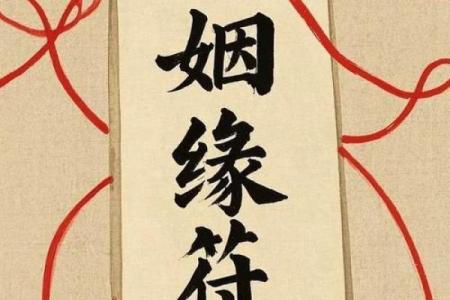 姻缘符